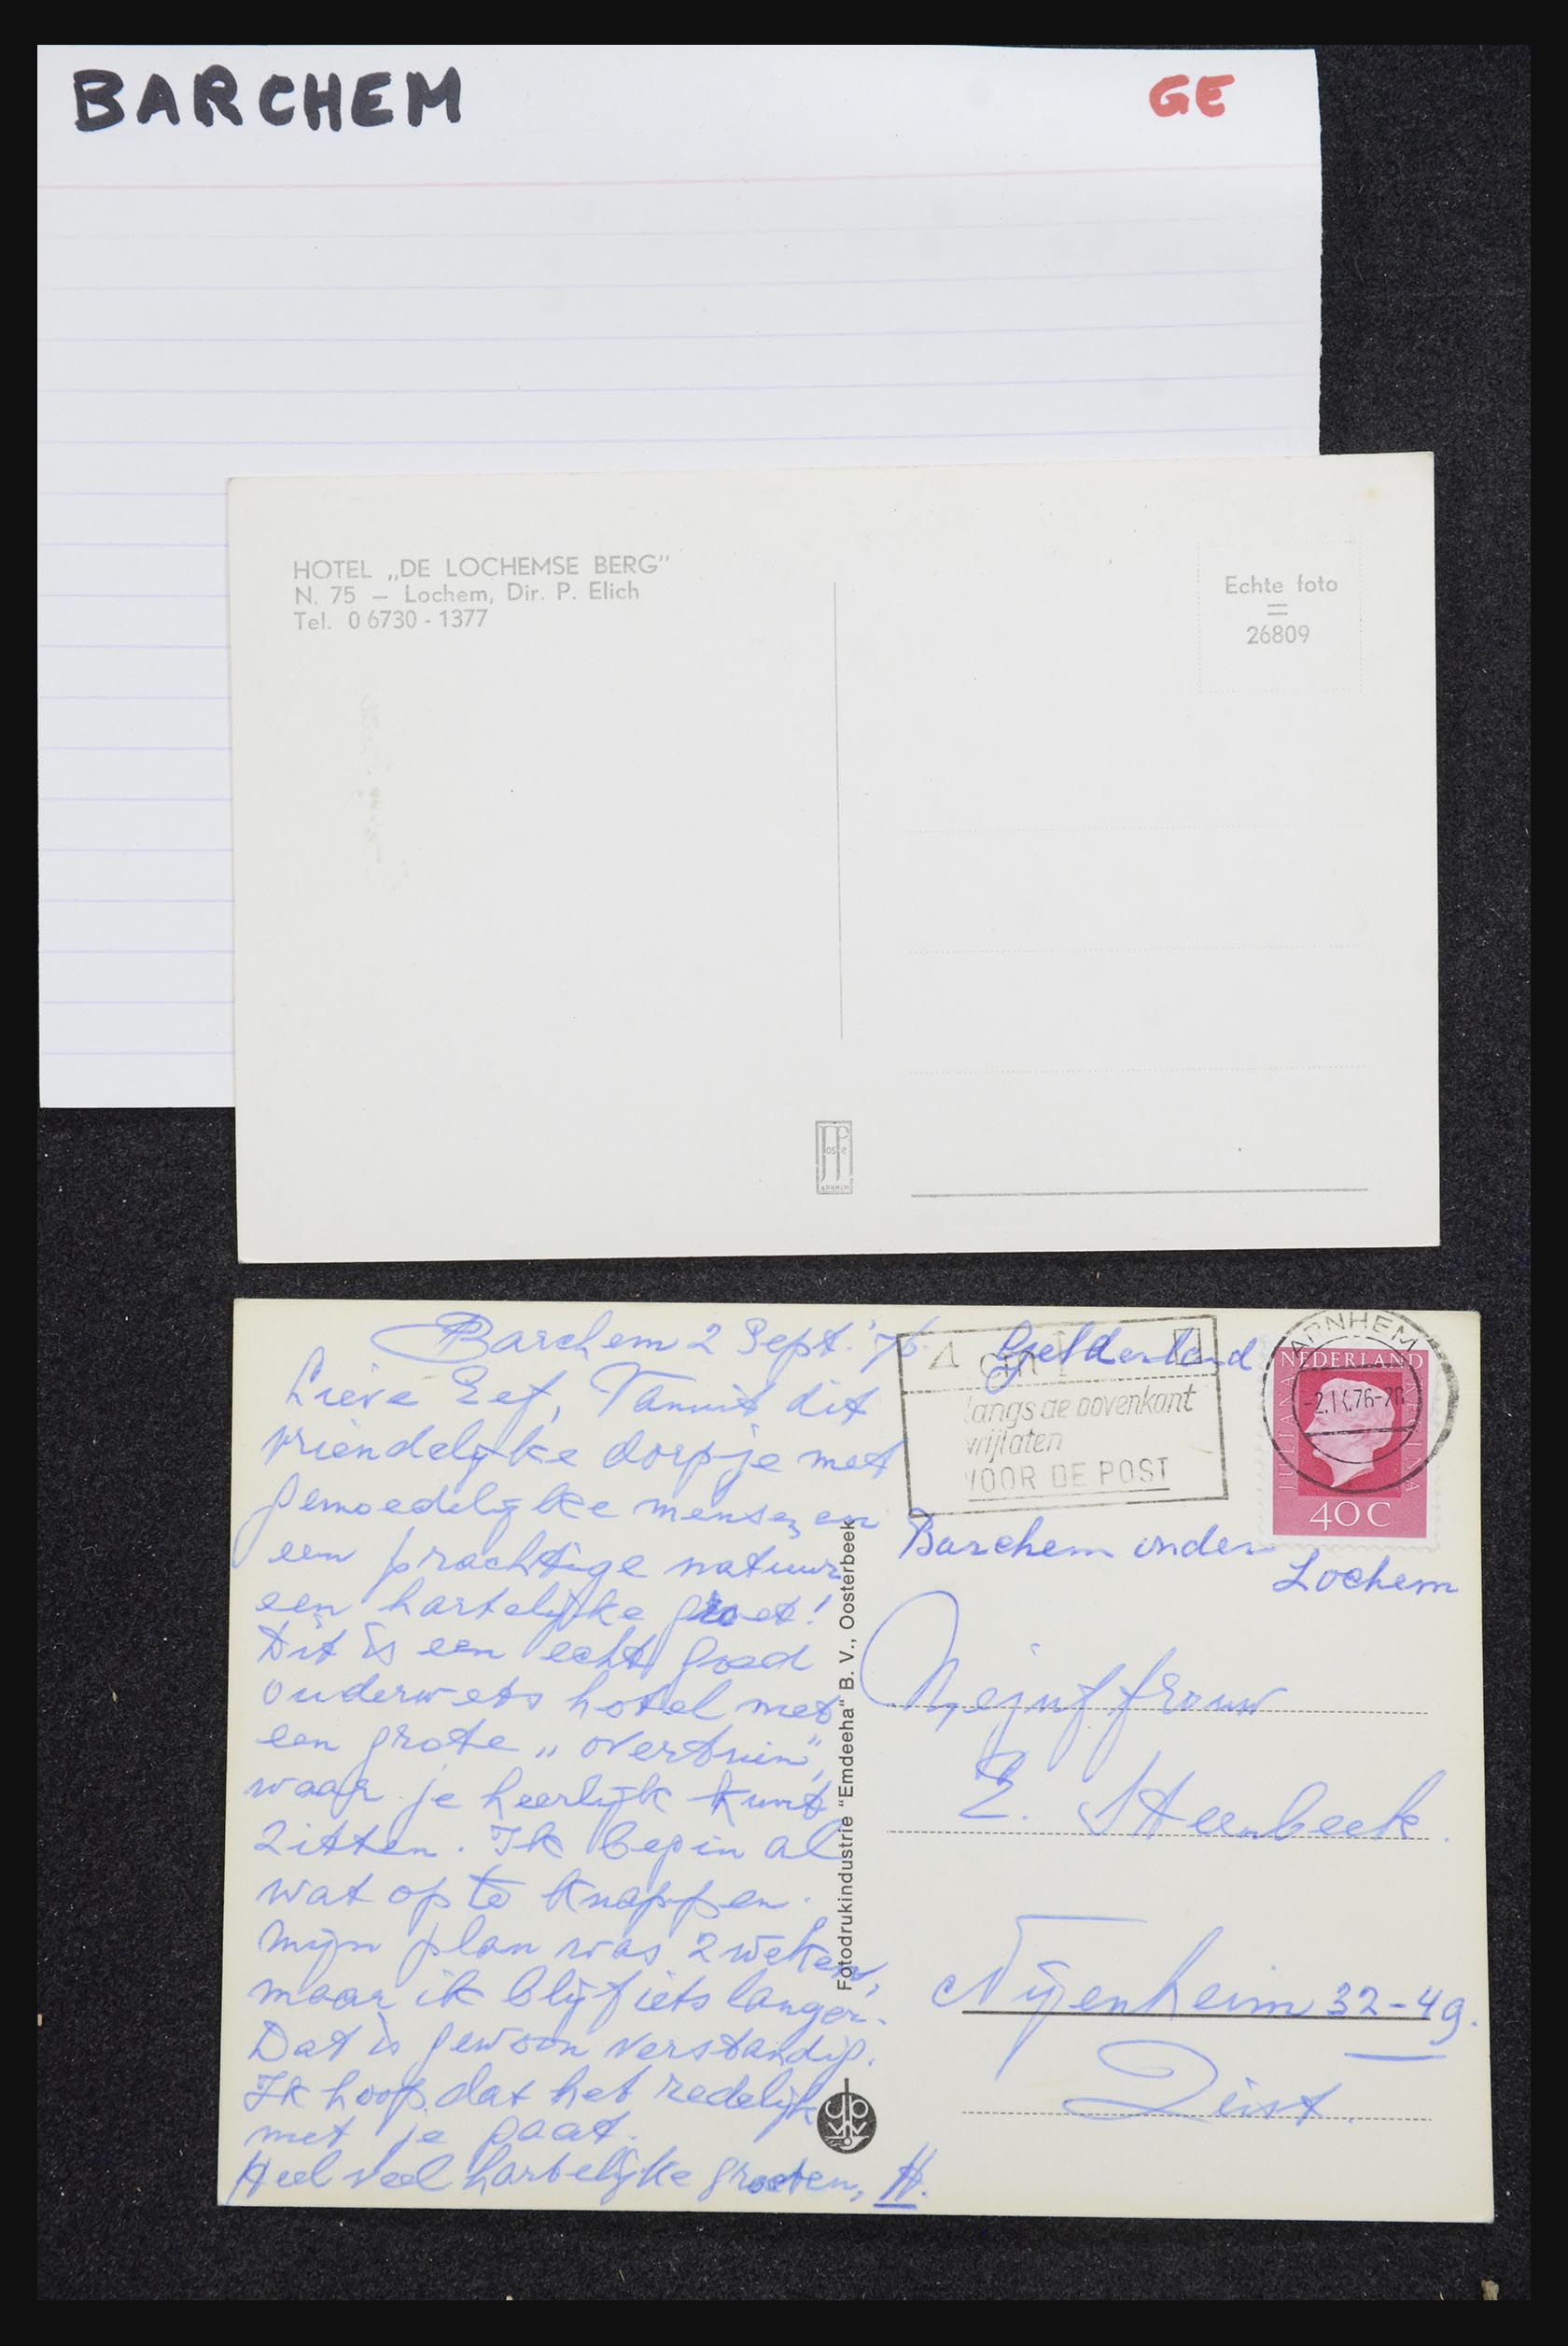 BARCHEM
GE
HOTEL „DE LOCHEMSE BERG"
N. 75 — Lochem, Dir. P. Elich
Tel. 0 6730 - 1377
Echte foto
=
26809
Barchem 2 Sept. '76.
Lieve Eef, Vanuit dit
vriendelijke dorpje met
gemoedelijke mensen en
een prachtige natuur
een hartelijke groet!
Dit is een echt goed
ouderwets hotel met
een grote „overtuin",
waar je heerlijk kunt
zitten. Ik begin al
wat op te knappen.
Mijn plan was 2 weken,
maar ik blijf iets langer.
Dat is gewoon verstandig.
Ik hoop dat het redelijk
met je gaat.
Heel veel hartelijke groeten, H.
Fotodrukindustrie "Emdeeha" B. V., Oosterbeek
Gelderland
langs de bovenkant
vrijlaten
VOOR DE POST
ARNHEM
76-20
NEDERLAND
JULIANA REGINA
40 C
Barchem onder
Lochem
Mejuffrouw
E. Steenbeek.
Nijenheim 32-49.
Zeist.